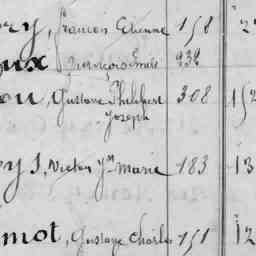 ry, francois Etienne 158
ux 938
ou, Gustave Philibert 308 152
Joseph
ey J, Victor Marie 183 13
mot, Gustave Charles 151 12